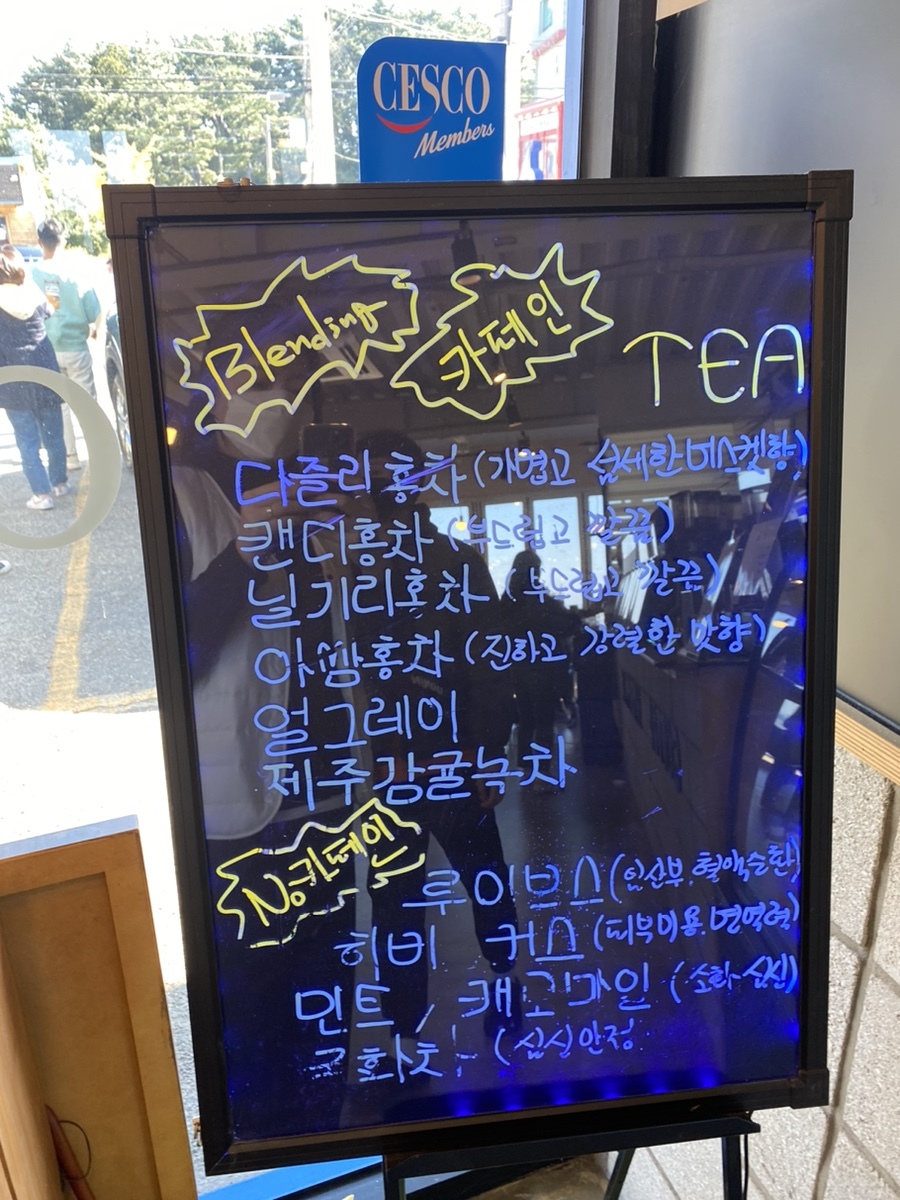 CESCO
Members
Blending 카페인 TEA
다즐리 홍차 (가볍고 섬세한 머스켓향)
캔디홍차 (부드럽고 깔끔)
닐기리홍차 (부드럽고 깔끔)
아쌈홍차 (진하고 강렬한 맛향)
얼그레이
제주감귤녹차
No카페인
루이보스 (임산부, 혈액순환)
히비 커스 (피부미용. 면역력)
민트 / 캐모마일 (소화 심신)
국화차 (심신안정